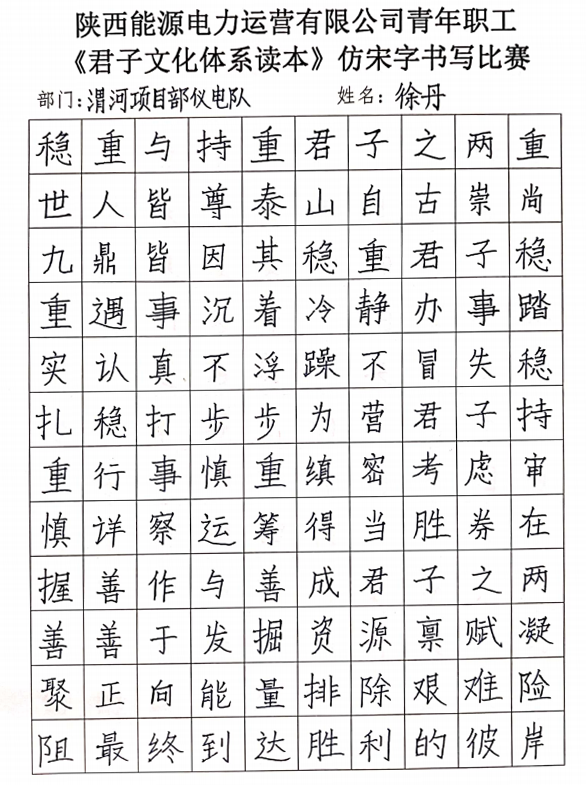 陕西能源电力运营有限公司青年职工
《君子文化体系读本》仿宋字书写比赛
部门：渭河项目部仪电队 姓名：徐丹
稳重与持重君子之两重
世人皆尊泰山自古崇尚
九鼎皆因其稳重君子稳
重遇事沉着冷静办事踏
实认真不浮躁不冒失稳
扎稳打步步为营君子持
重行事慎重缜密考虑审
慎详察运筹得当胜券在
握善作与善成君子之两
善善于发掘资源禀赋凝
聚正向能量排除艰难险
阻最终到达胜利的彼岸